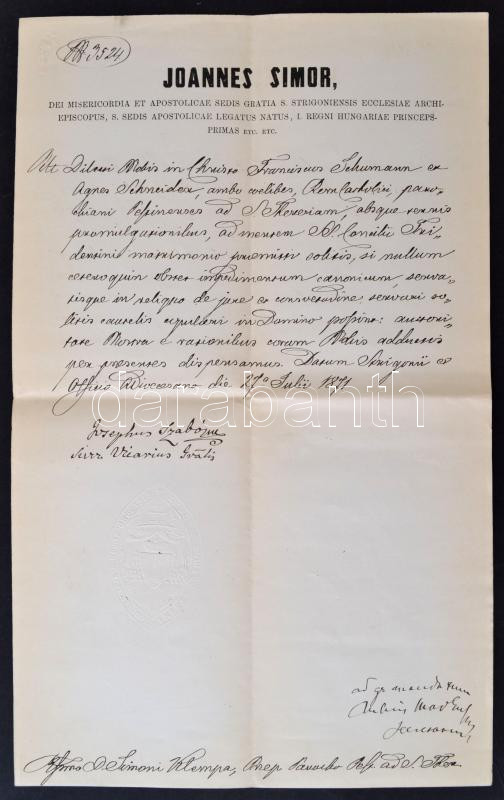 3524
JOANNES SIMOR,
DEI MISERICORDIA ET APOSTOLICAE SEDIS GRATIA S. STRIGONIENSIS ECCLESIAE ARCHI-
EPISCOPUS, S. SEDIS APOSTOLICAE LEGATUS NATUS, I. REGNI HUNGARIAE PRINCEPS-
PRIMAS ETC. ETC.
Uti Dilecti Nobis in Christo Franciscus Schumann et
Agnes Schneider, ambo coelibes, Rom Catholici, paro-
chiani Pestinenses ad S Theresiam, absque ternis
promulgationibus, ad mentem SS. Concilii Tri-
dentini matrimonio praemitti solitis, si nullum
ceteroquin obstet impedimentum canonicum, serva-
tisque in reliquo de jure et consvetudine servari so-
litis cautelis copulari in Domino possint: authori-
tate Nostra e rationibus coram Nobis adductis
per praesentes dispensamus. Datum Strigonii ex
Officio Dioecesano die 27a Julii 1871
darabanth
Josephus Szabó
Vicarius Gralis
ad gr mandatum
D. Simoni Klempa, Parocho Pest. ad S. Ther.